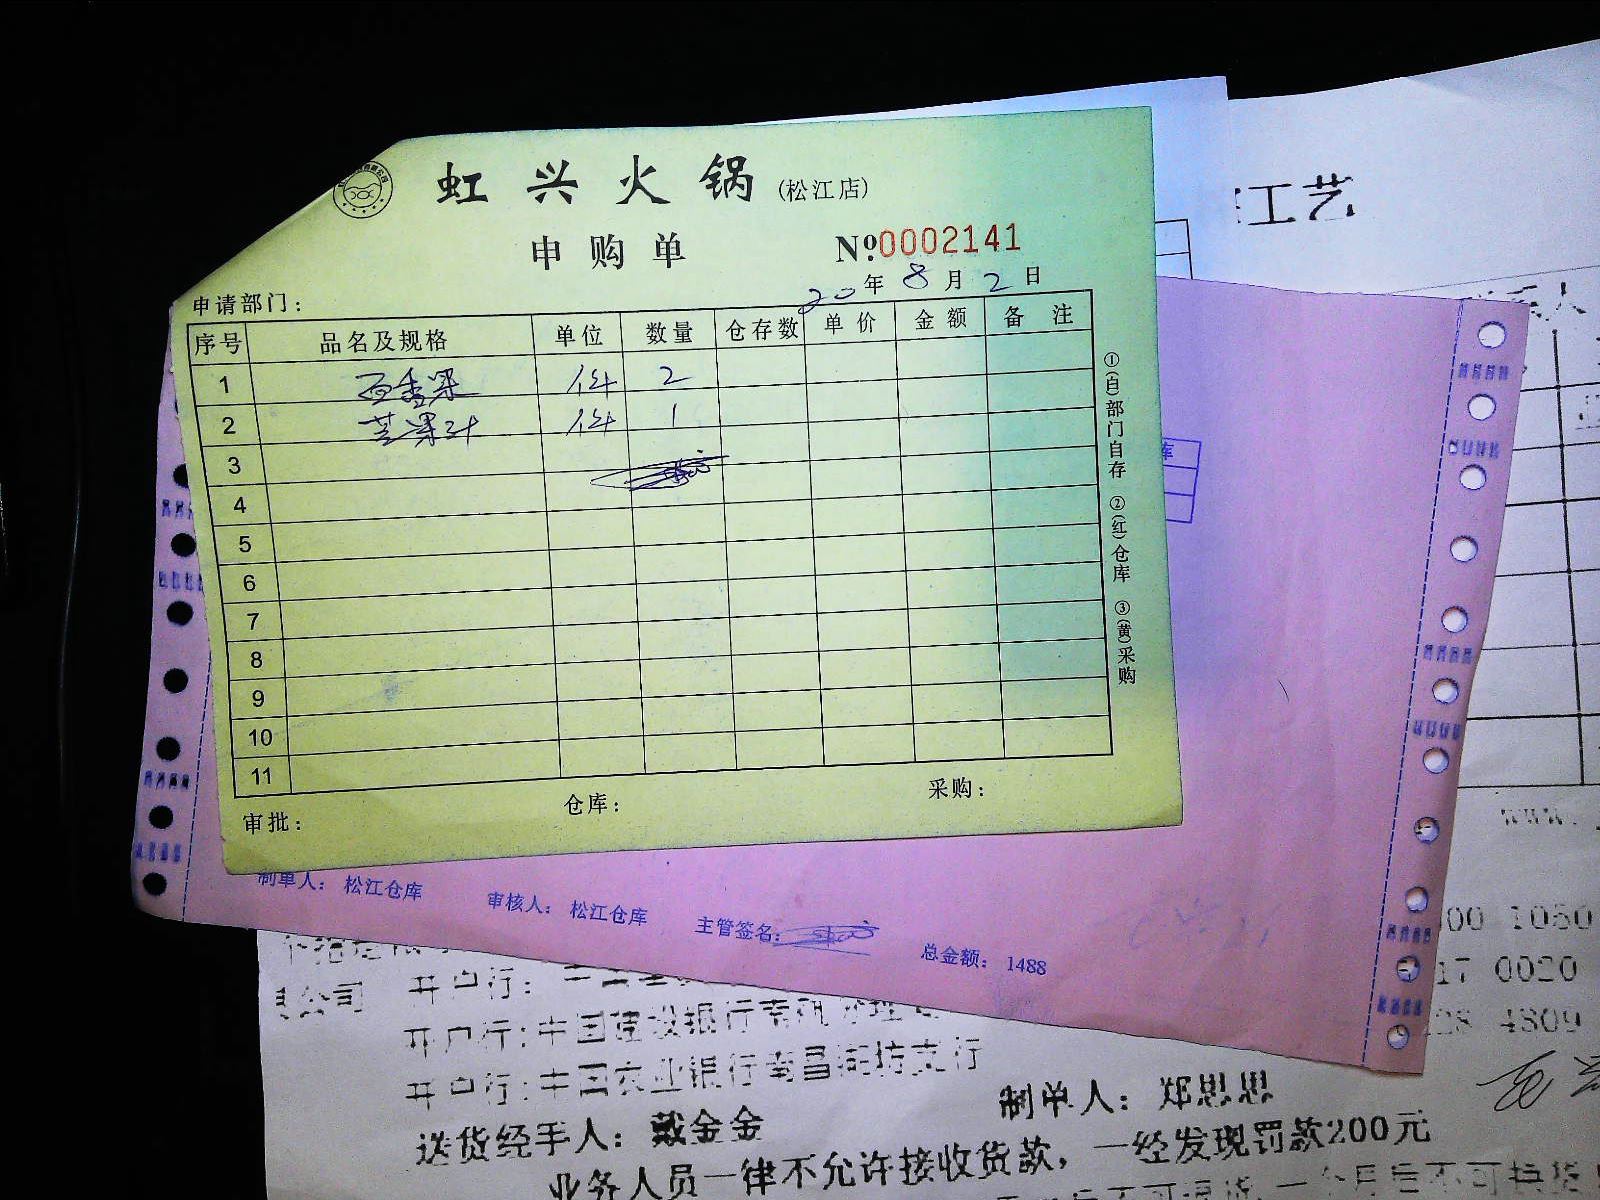 虹兴火锅(松江店)
申购单 Nº:0002141
20年8月2日
申请部门:
序号 品名及规格 单位 数量 仓存数 单价 金额 备注
1 百香果 件 2
2 芒果汁 件 1
3
4
5
6
7
8
9
10
11
审批: 仓库: 采购:
①(自)部门自存 ②(红)仓库 ③(黄)采购
工艺
库
制单人: 松江仓库 审核人: 松江仓库 主管签名: 总金额: 1488
00 1050
公司 开户行:
17 0020
开户行:中国建设银行
4809
开户行:中国农业银行南昌街坊支行
制单人: 郑思思
送货经手人: 戴金金
业务人员一律不允许接收货款,一经发现罚款200元
www.